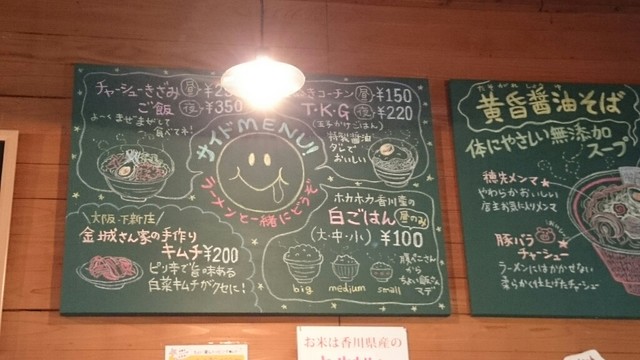 チャーシューきざみ 昼 ¥2
ご飯 夜 ¥350
よーく まぜまぜして
食べてネ!
きコーチン 昼 ¥150
T・K・G 夜 ¥220
(玉子かけごはん)
特製醤油
ダレで
おいしい
サイドMENU!
ラーメンと一緒にどうぞ
大阪・下新庄
金城さん家の手作り
キムチ ¥200
ピリ辛で旨味ある
白菜キムチがクセに!
ホカホカ香川産の
白ごはん 昼のみ
(大・中・小) ¥100
から
ちょい飯さん
マデ
big medium small
黄昏醤油そば
体にやさしい無添加
スープ
穂先メンマ★
やわらかおいしい
店主お気に入りメンマ
豚バラ
チャーシュー
ラーメンにはかかせない
柔らかく仕上げたチャーシュー
お米は香川県産の